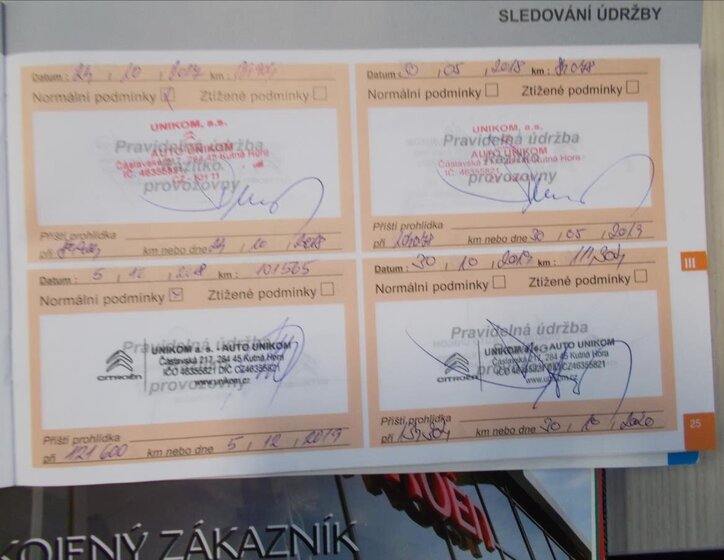 SLEDOVÁNÍ ÚDRŽBY
Datum : 24 , 10 , 2017 km :
Normální podmínky Ztížené podmínky
Pravidelná údržba
Razítko
provozovny
UNIKOM, a.s.
AUTO UNIKOM
Čáslavská 217, 284 45 Kutná Hora
IČ: 46355821
Příští prohlídka
při km nebo dne 24 , 10 , 2018
Datum : 30 , 05 , 2018 km :
Normální podmínky Ztížené podmínky
Pravidelná údržba
Razítko
provozovny
UNIKOM, a.s.
AUTO UNIKOM
Čáslavská 217, 284 45 Kutná Hora
IČ: 46355821
Příští prohlídka
při km nebo dne 30 , 05 , 2019
Datum : 5 , 12 , 2018 km : 101565
Normální podmínky Ztížené podmínky
Pravidelná údržba
provozovny
CITROËN
UNIKOM a. s. - AUTO UNIKOM
Čáslavská 217, 284 45 Kutná Hora
IČO 46355821 DIČ CZ46355821
www.unikom.cz
Příští prohlídka
při 121 600 km nebo dne 5 , 12 , 2019
Datum : 30 , 10 , 2019 km :
Normální podmínky Ztížené podmínky
Pravidelná údržba
provozovny
CITROËN
UNIKOM a. s. - AUTO UNIKOM
Čáslavská 217, 284 45 Kutná Hora
IČO 46355821 DIČ CZ46355821
www.unikom.cz
Příští prohlídka
při km nebo dne 30 , 10 , 2020
III
25
KOJENÝ ZÁKAZNÍK